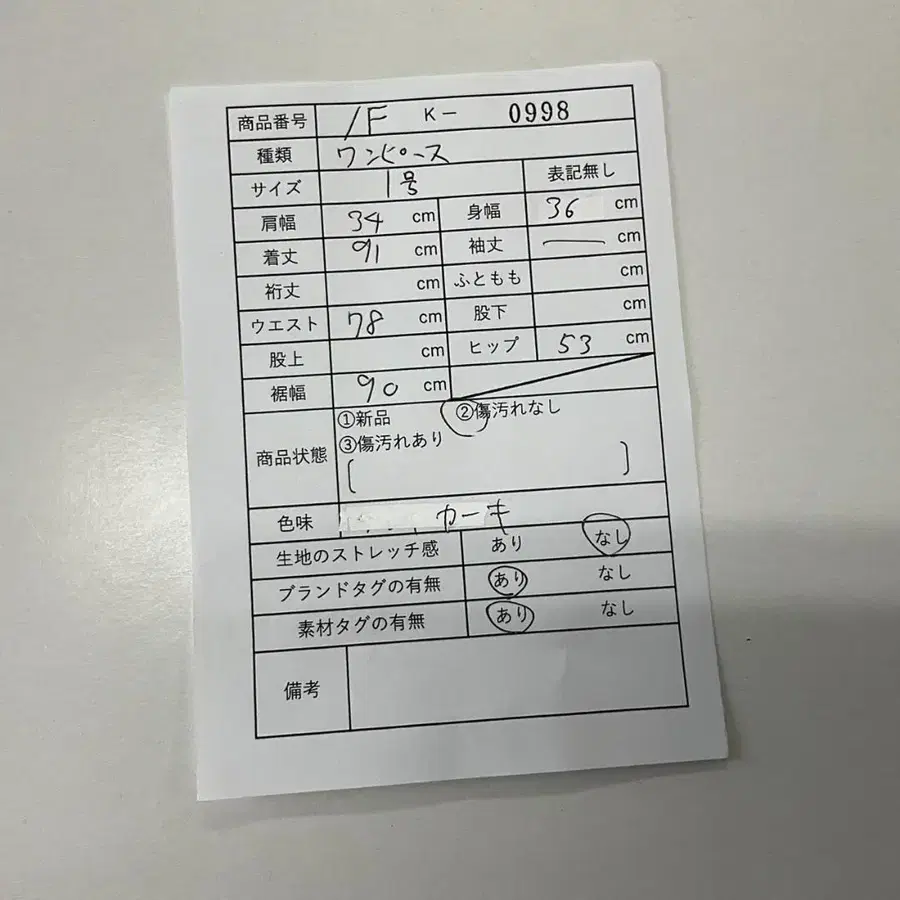 商品番号 1F K- 0998
種類 ワンピース
サイズ 1号 表記無し
肩幅 34 cm 身幅 36 cm
着丈 91 cm 袖丈 — cm
裄丈 cm ふともも cm
ウエスト 78 cm 股下 cm
股上 cm ヒップ 53 cm
裾幅 90 cm
商品状態 ①新品 ②傷汚れなし
③傷汚れあり
[ ]
色味 カーキ
生地のストレッチ感 あり なし
ブランドタグの有無 あり なし
素材タグの有無 あり なし
備考